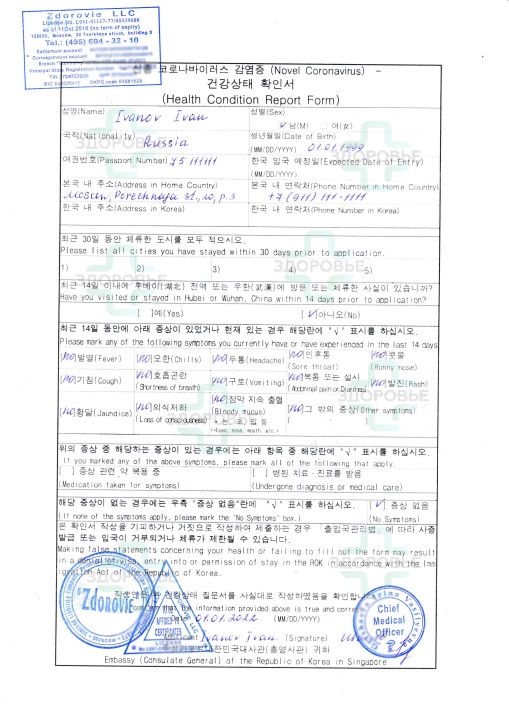 Zdorovie LLC
as of 11 Oct.2018 (no term of expiry)
Tel.: (495) 694 - 32 - 10
Settlement account
Correspondent account
신종 코로나바이러스 감염증 (Novel Coronavirus) –
건강상태 확인서
(Health Condition Report Form)
성명(Name) Ivanov Ivan
성별(Sex)
√ 남(M) 여(女)
국적(Nationality) Russia
생년월일(Date of Birth)
(MM/DD/YYYY) 01.01.1999
여권번호(Passport Number) 75 111111
한국 입국 예정일(Expected Date of Entry)
(MM/DD/YYYY)
본국 내 주소(Address in Home Country)
Moscow, Porechnaya st., 10, p.3
본국 내 연락처(Phone Number in Home Country)
+7 (911) 111-1111
한국 내 주소(Address in Korea)
한국 내 연락처(Phone Number in Korea)
최근 30일 동안 체류한 도시를 모두 적으시오.
Please list all cities you have stayed within 30 days prior to application.
1) 2) 3) 4) 5)
최근 14일 이내에 후베이(湖北) 전역 또는 우한(武漢)에 방문 또는 체류한 사실이 있습니까?
Have you visited or stayed in Hubei or Wuhan, China within 14 days prior to application?
[ ]예(Yes) [√]아니오(No)
최근 14일 동안에 아래 증상이 있었거나 현재 있는 경우 해당란에 "√" 표시를 하십시오.
Please mark any of the following symptoms you currently have or have experienced in the last 14 days
[No]발열(Fever) [No]오한(Chills) [No]두통(Headache) [No]인후통 (Sore throat) [No]콧물 (Runny nose)
[No]기침(Cough) [No]호흡곤란 (Shortness of breath) [No]구토(Vomiting) [No]복통 또는 설사 (Abdominal pain or Diarrhea) [No]발진(Rash)
[No]황달(Jaundice) [No]의식저하 (Loss of consciousness) [No]점막 지속 출혈 (Bloody mucus) * 눈, 코, 입 등 (*Eyes, nose, mouth, etc.) [No]그 밖의 증상(Other symptoms) ( )
위의 증상 중 해당하는 증상이 있는 경우에는 아래 항목 중 해당란에 "√" 표시를 하십시오.
If you marked any of the above symptoms, please mark all of the following that apply.
[ ] 증상 관련 약 복용 중
(Medication taken for symptoms)
[ ] 병원 치료·진료를 받음
(Undergone diagnosis or medical care)
해당 증상이 없는 경우에는 우측 "증상 없음"란에 "√" 표시를 하십시오.
(If none of the symptoms apply, please mark the 'No Symptoms' box.)
[√] 증상 없음
(No Symptoms)
본 확인서 작성을 기피하거나 거짓으로 작성하여 제출하는 경우 「출입국관리법」에 따라 사증
발급 또는 입국이 거부되거나 체류가 제한될 수 있습니다.
Making false statements concerning your health or failing to fill out the form may result
in a denial of visa, entry into or permission of stay in the ROK in accordance with the Imm
igration Act of the Republic of Korea.
작성자는 위 건강상태 질문서를 사실대로 작성하였음을 확인합니다
confirm that the information provided above is true and correct
01.01.2022 (MM/DD/YYYY)
Applicant Ivanov Ivan (Signature)
대한민국대사관(총영사관) 귀하
Embassy (Consulate General) of the Republic of Korea in Singapore
Zdorovie
Moscow
FOR CERTIFICATES
Chief
Medical
Officer
Arina Vasilyevna
ЗДОРОВЬЕ